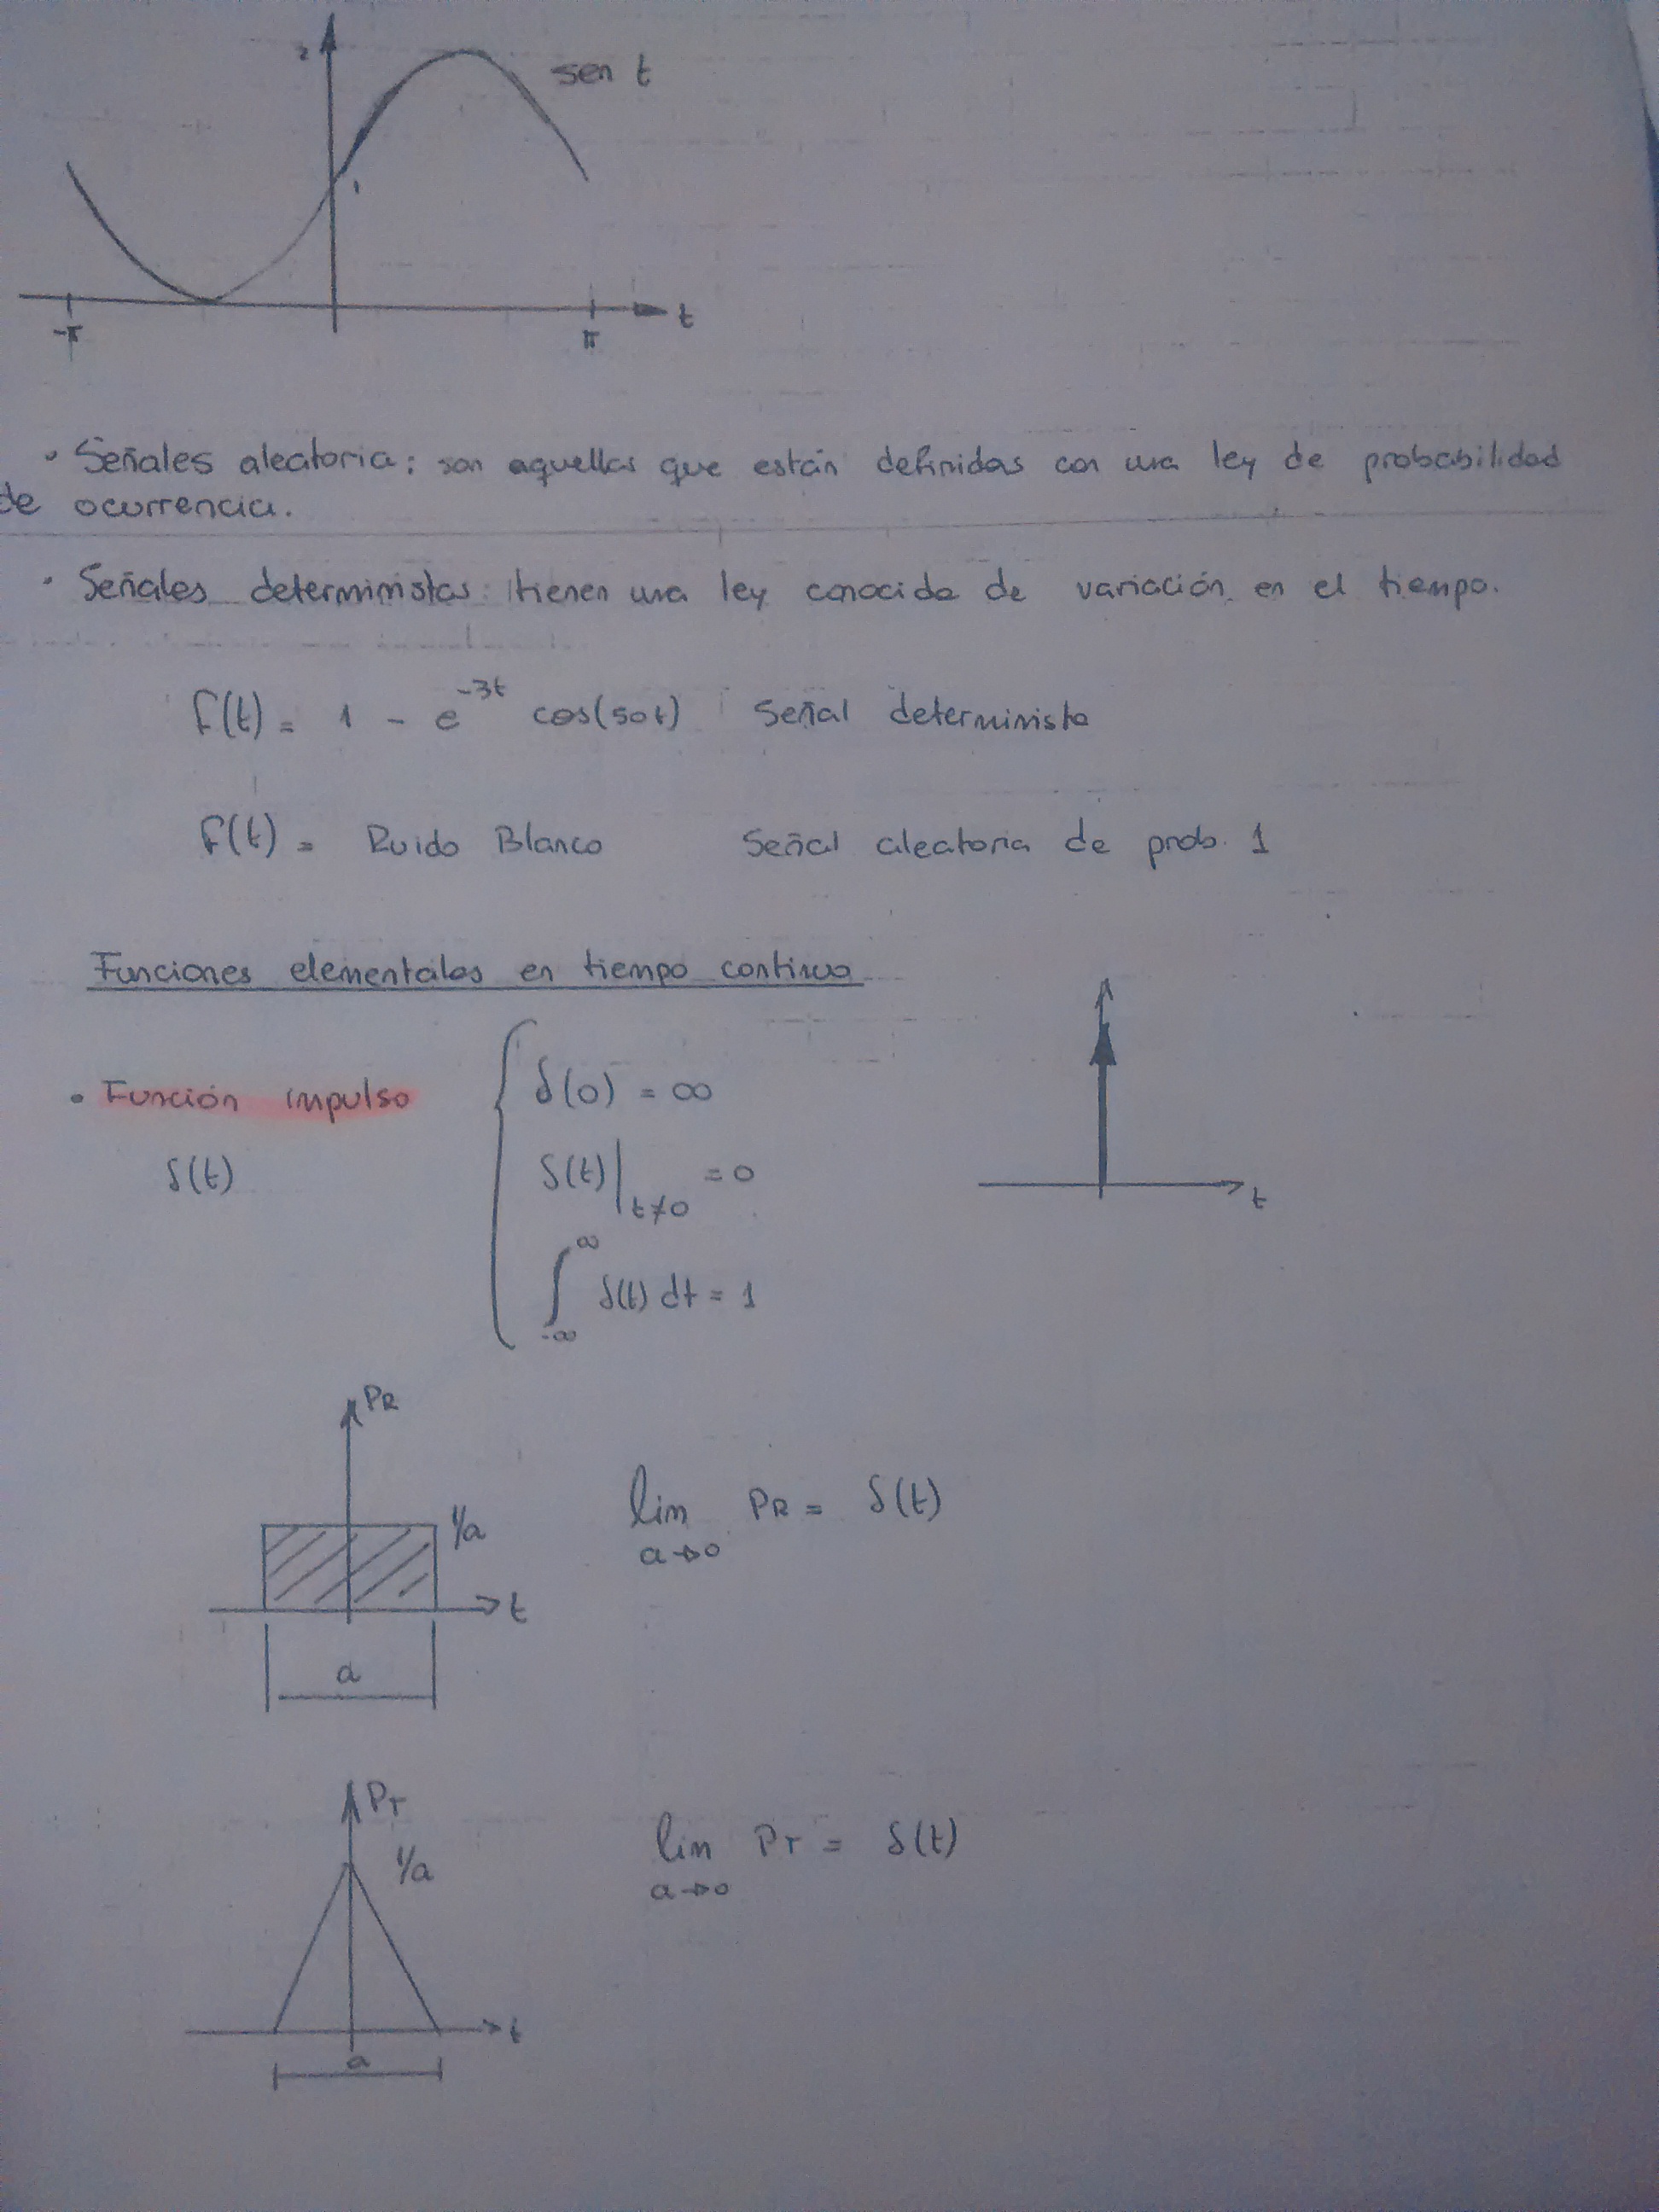 2
sen t
1
-π
π
t
• Señales aleatoria: son aquellas que están definidas con una ley de probabilidad
de ocurrencia.
• Señales deterministas: tienen una ley conocida de variación en el tiempo.
f(t) = 1 - e^-3t cos(50t) Señal determinista
f(t) = Ruido Blanco Señal aleatoria de prob. 1
Funciones elementales en tiempo continuo
• Función impulso
δ(t)
δ(0) = ∞
δ(t)|t≠0 = 0
∫-∞^∞ δ(t) dt = 1
t
PR
1/a
t
a
lim a→0 PR = δ(t)
PT
1/a
t
a
lim a→0 PT = δ(t)